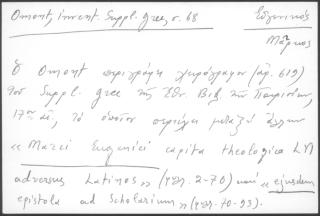 Omont, invent. Suppl. grec, σ. 68
Εὐγενικός
Μᾶρκος
Ὁ Omont περιγράφει χειρόγραφον (ἀρ. 619)
τοῦ Suppl. grec τῆς Ἐθν. Βιβ. τῶν Παρισίων,
17ου αἰ., τὸ ὁποῖον περιέχει μεταξὺ ἄλλων
« Marci Eugenici capita theologica LN
adversus Latinos » (φφ. 2-70) καὶ « ejusdem
epistola ad Scholarium » (φφ. 70-93).